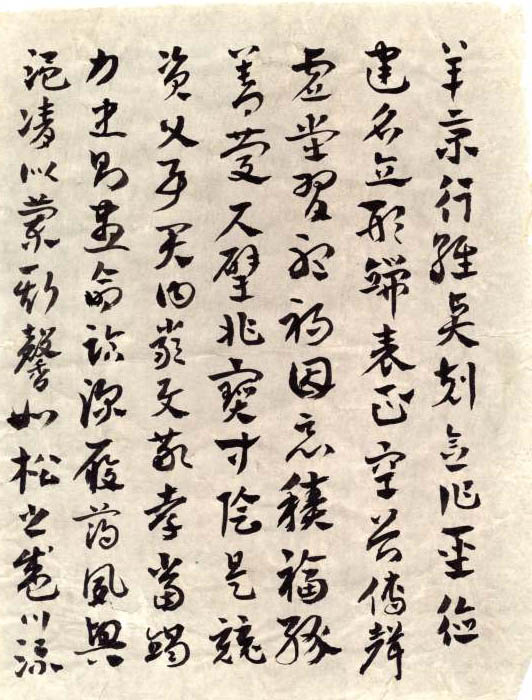 羊景行維賢剋念作聖德
建名立形端表正空谷傳聲
虛堂習聽禍因惡積福緣
善慶尺璧非寶寸陰是競
資父事君曰嚴與敬孝當竭
力忠則盡命臨深履薄夙興
溫凊似蘭斯馨如松之盛川流